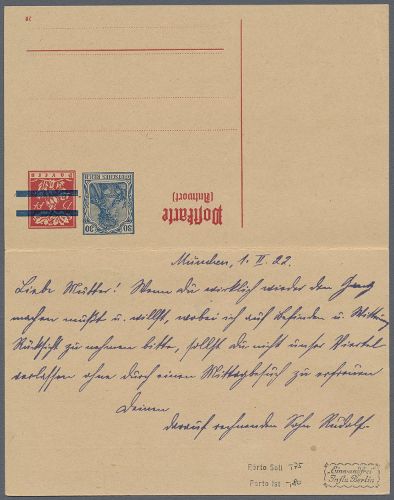 20
Postkarte
(Antwort)
BAYERN
DEUTSCHES REICH
30 30
München, 1. II. 22.
Liebe Mutter! Wenn du wirklich wieder den Gang
machen mußt u. willst, wobei ich auf Befinden u. Witterung
Rücksicht zu nehmen bitte, sollst du nicht unser Viertel
verlassen ohne durch einen Mittagsbesuch zu erfreuen
Deinen
darauf rechnenden Sohn Rudolf.
Porto Soll 1,75
Porto Ist -,80
Einwandfrei
Infla Berlin